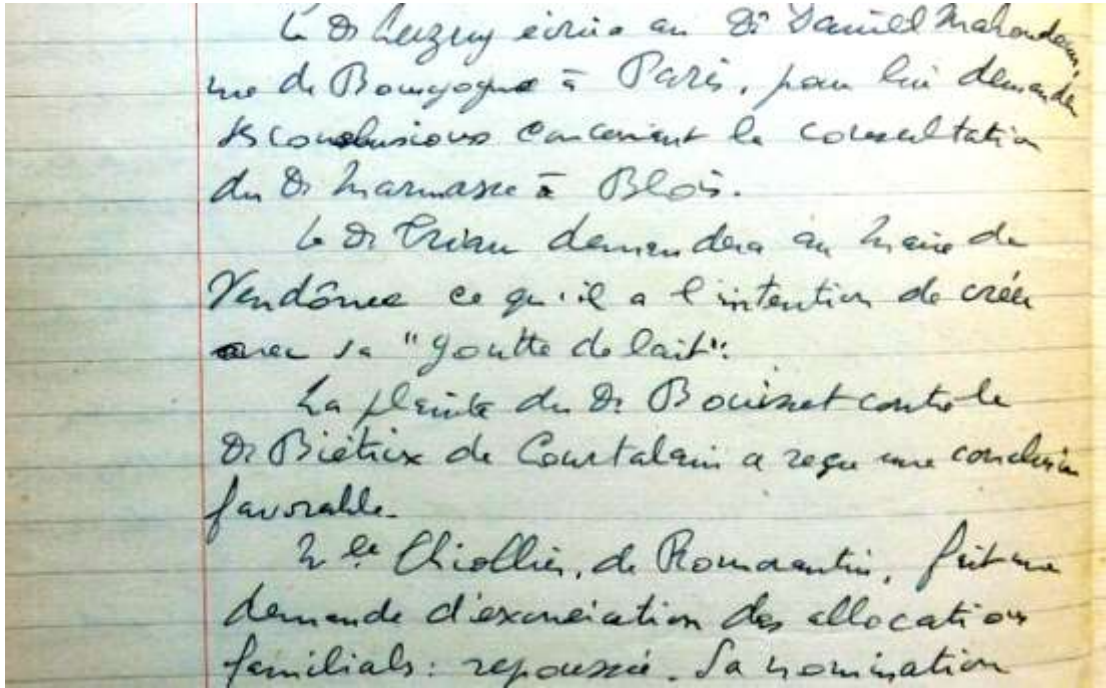 Le Dr Luzuy écrira au Dr Daniel
rue de Bourgogne à Paris, pour lui demander
ses conclusions concernant la consultation
du Dr Marmasse à Blois.
Le Dr demandera au Maire de
Vendôme ce qu'il a l'intention de créer
avec sa "goutte de lait".
La plainte du Dr Bouisset contre le
Dr Biétrix de Courtalain a reçu une conclusion
favorable.
Mlle Chiollier, de Romorantin, fait une
demande d'exonération des allocations
familials : repoussée. Sa nomination